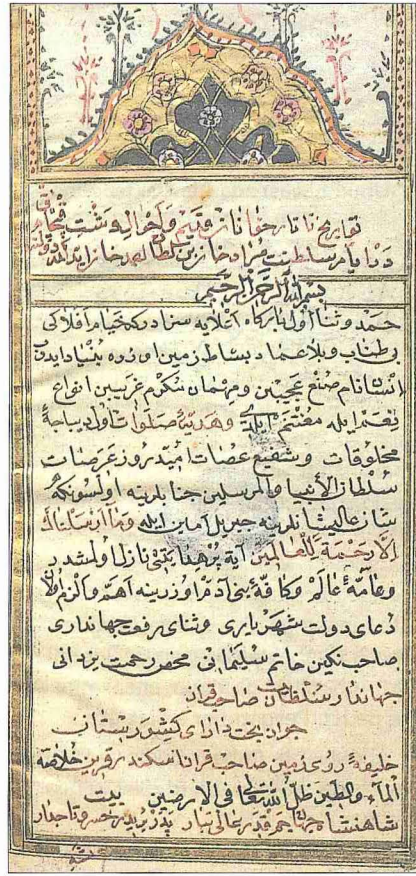 تواریخ تاتار خانان قدیم و احوال دشت قبچاق
در ایام سلطنت مراد خان بن سلطان احمد خان
بسم الله الرحمن الرحیم
حمد و ثنا اول بارگاه اعلایه سزادرکه خیام افلاکی
بی طناب و بلا عماد بساط زمین اوزره بنیاد ایدوب
انسان نام صنع عجیبن و مهمان مکرم غریبین انواع
نعم ایله مغتنم ایلدی و هدیۀ صلوات اول دیباجۀ
مخلوقات و شفیع عصات امید روز عرصات
سلطان الانبیا والمرسلین جنابلرینه اولسونکه
شان عالیشانلرینه جبریل امین ایله وما ارسلناك
الا رحمة للعالمین آیة برهان نازل اولمشدر
وعامۀ عالم و کافۀ بنی آدم اوزرینه اهم والزم اولان
دعای دولت شهریاری و ثنای رفعت جهانداری
صاحب نکین خاتم سلیمانی محض رحمت یزدانی
جهاندار سلطان صاحب قران
جوان بخت دارای کشورستانی
خلیفۀ روی زمین صاحب قران اسکندر قرین خلاصه
الماء والطین ظل الله تعالی فی الارضین بیت
شاهنشاه جم قدر عالی تبار پدر بر پدر خسرو تاجدار